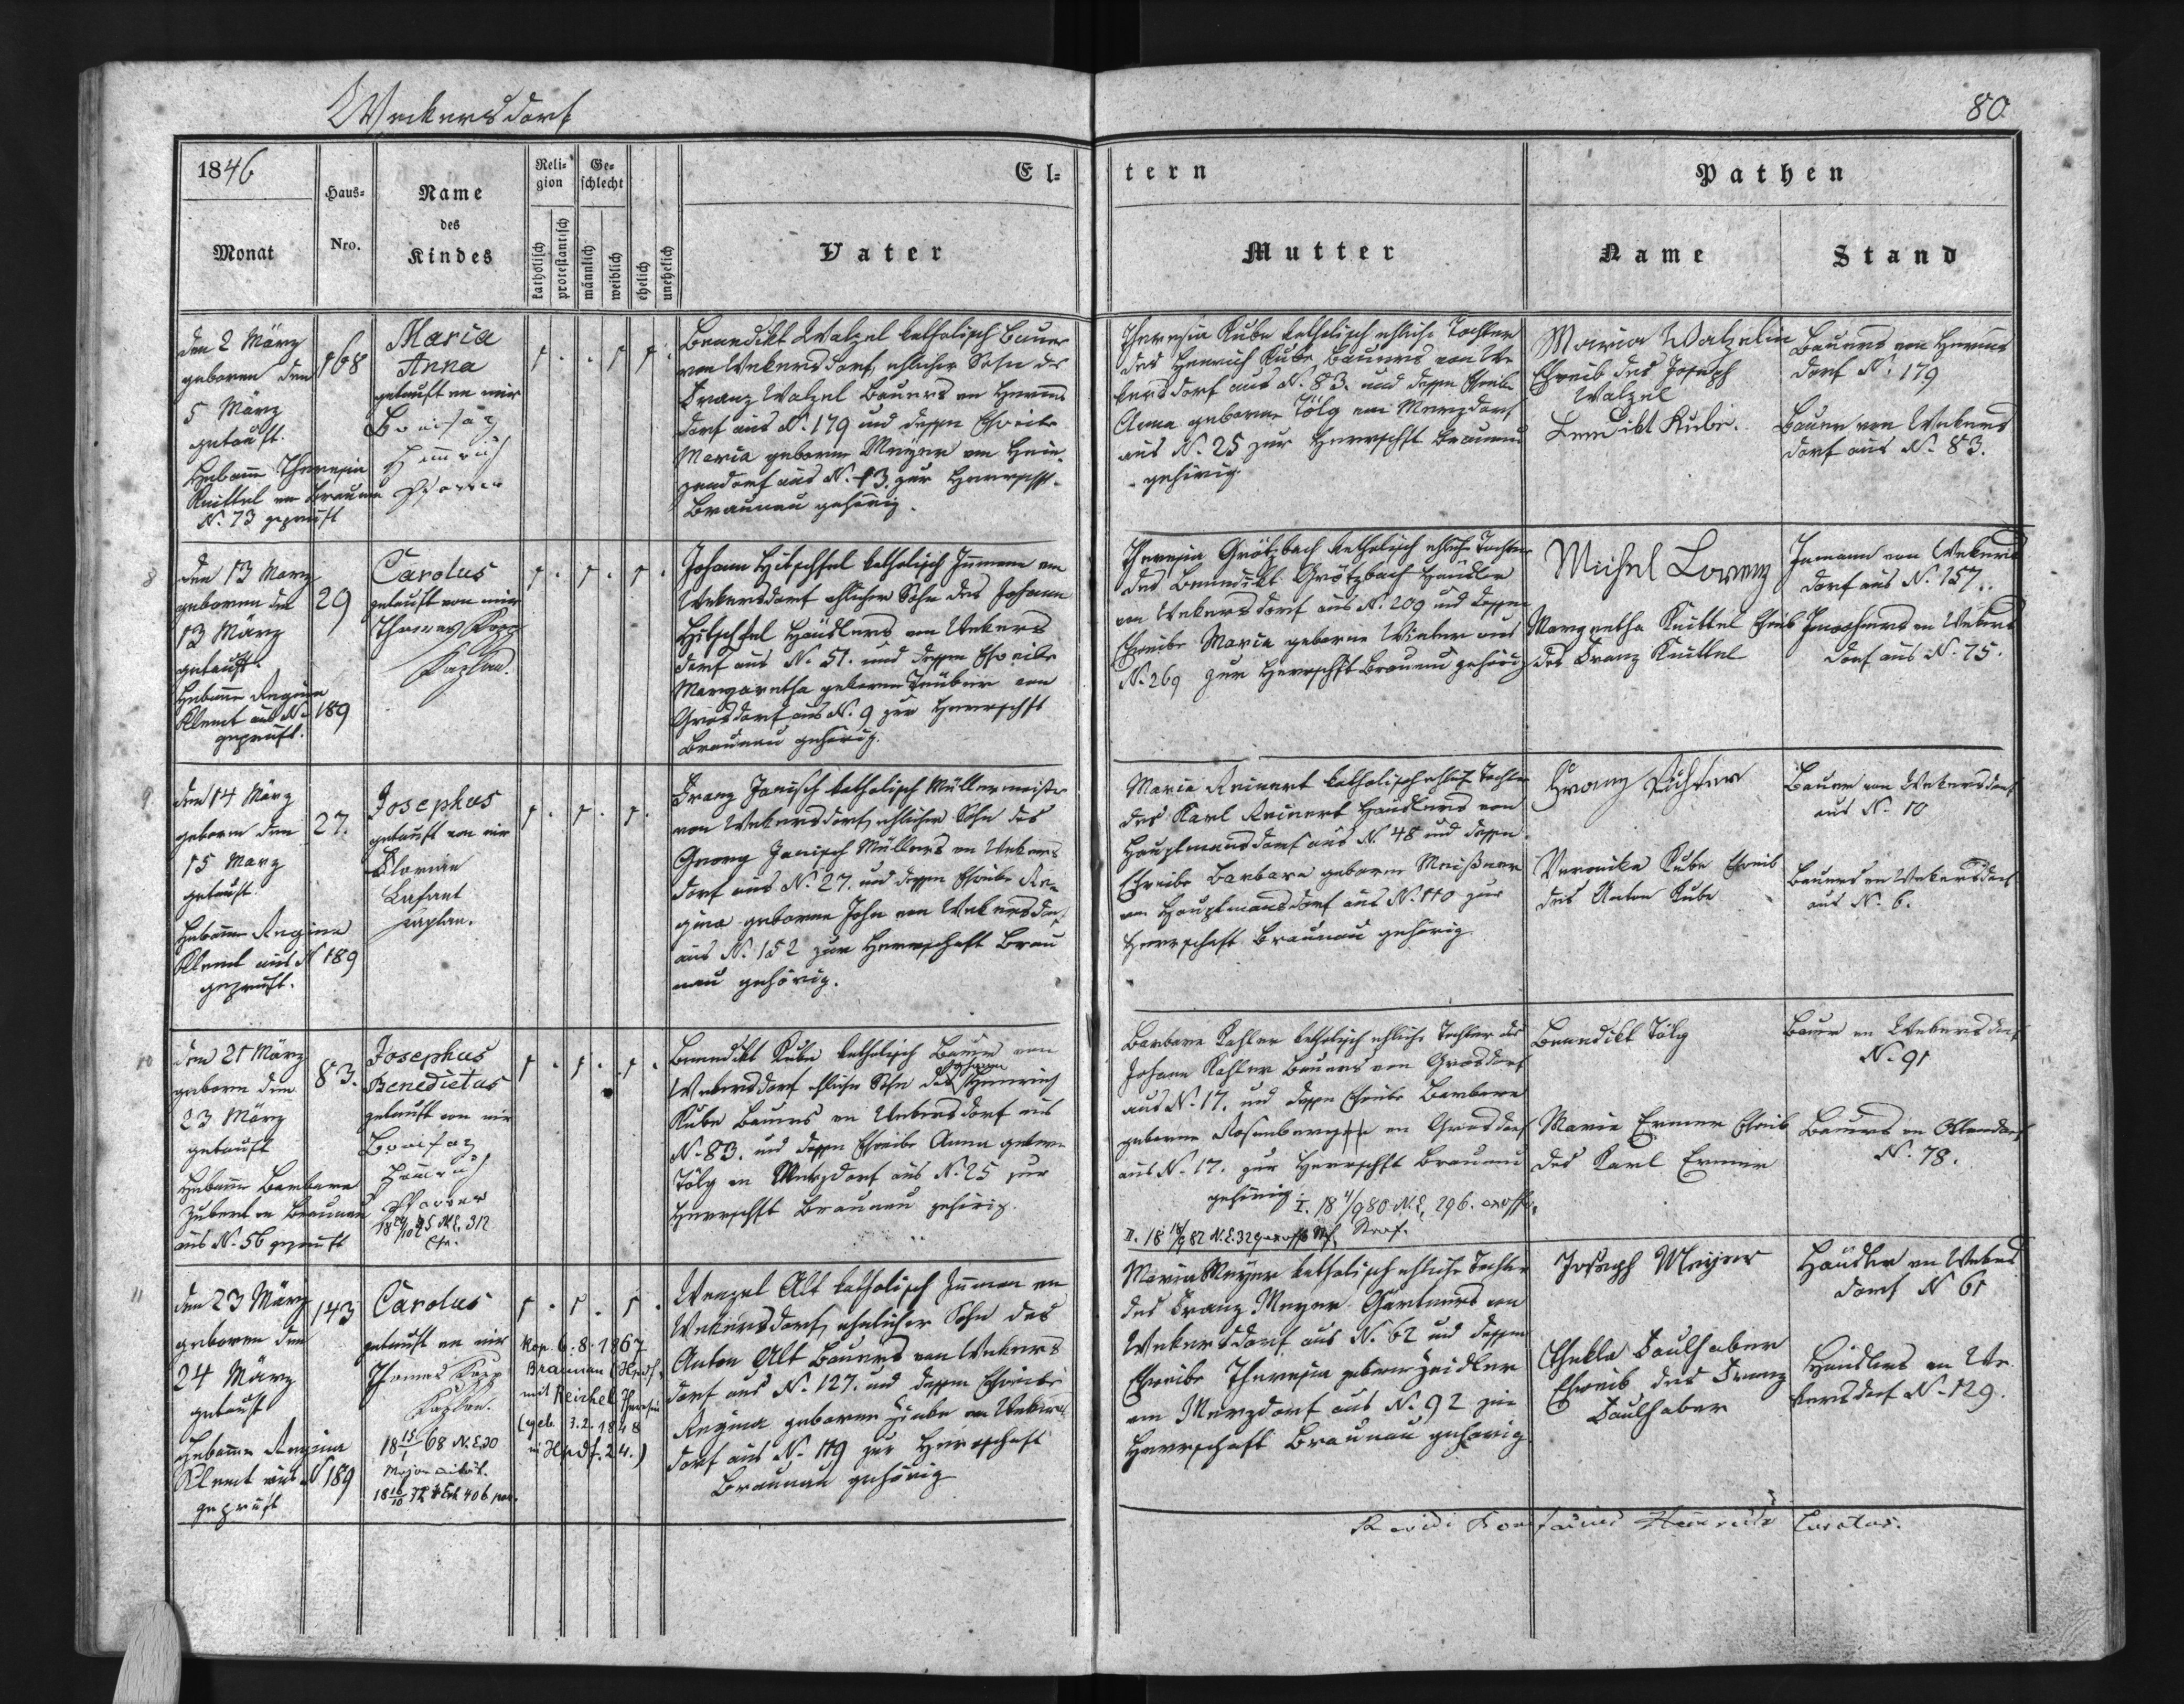 Weckersdorf
80
1846
Monat
Haus-
Nro.
Name
des
Kindes
Reli-
gion
katholisch
protestantisch
Ge-
schlecht
männlich
weiblich
ehelich
unehelich
El-
tern
Vater
Mutter
Pathen
Name
Stand
den 2 März
geboren den
5 März
getauft.
Hebame Theresia
Knittel von Braunau
N. 73 geprüft
168
Maria
Anna
getauft von mir
Bonifaz
Heinrich
Pfarrer
Benedikt Walzel katholisch Bauer
von Wekersdorf, ehlicher Sohn des
Franz Walzel Bauers von Herms
dorf aus N. 179 und dessen Eheweibs
Maria geborne Meyer von Hein-
zendorf aus N. 13. zur Herrschft.
Braunau gehörig.
Theresia Kube katholisch ehliche Tochter
des Heinrich Kube Bauers von We
kersdorf aus N. 83. und dessen Eheweibs
Anna geborne Tölg von Merzdorf
aus N. 25 zur Herrschft Braunau
gehörig.
Maria Walzelin
Eheweib des Joseph
Walzel
Benedikt Kube.
Bauers von Herms
dorf N. 179
Bauer von Wekers
dorf aus N. 83.
8
den 13 März
geboren den
13 März
getauft.
Hebame Regina
Klemt aus N. 189
geprüft.
29
Carolus
getauft von mir
Thomas Kopp
Kaplan.
Johann Hitschfel katholisch Inmann von
Wekersdorf ehlicher Sohn des Johann
Hitschfel Häuslers von Wekers
dorf aus N. 51. und dessen Eheweibs
Margaretha geborne Teuber von
Grosdorf aus N. 9 zur Herrschft
Braunau gehörig.
Theresia Grötzbach katholisch ehliche Tochter
des Benedikt Grötzbach Häusler
von Wekersdorf aus N. 209 und dessen
Eheweibs Maria geborne Winter aus
N. 269 zur Herrschft Braunau gehörig
Michel Lorenz
Margretha Knittel Eheweib
des Franz Knittel
Inmann von Wekers
dorf aus N. 157.
Inwohners von Wekers
dorf aus N. 75.
9
den 14 März
geboren den
15 März
getauft
Hebame Regina
Klemt aus N 189
geprüft.
27.
Josephus
getauft von mir
Florian
Kaplan.
Franz Janisch katholisch Müllermeister
von Wekersdorf, ehlicher Sohn des
Georg Janisch Müllers von Wekers
dorf aus N. 27. und dessen Eheweibs Re-
gina geborne John von Wekersdorf
aus N. 152 zur Herrschaft Brau
nau gehörig.
Maria Reinert katholisch ehliche Tochter
des Karl Reinert Häuslers von
Hauptmansdorf aus N. 48 und dessen
Eheweibs Barbara geborne Meißner
von Hauptmansdorf aus N. 110 zur
Herrschaft Braunau gehörig.
Franz Richter
Veronika Kube Eheweib
des Anton Kube
Bauer von Wekersdorf
aus N. 10
Bauers von Wekersdorf
aus N. 6.
10
den 21 März
geboren den
23 März
getauft
Hebame Barbara
Hubert von Braunau
aus N. 56 geprüft
83.
Josephus
Benedictus
getauft von mir
Bonifaz
Heinrich
Pfarrer
Benedikt Kube katholisch Bauer von
Wekersdorf ehlicher Sohn des Johann Heinrich
Kube Bauers von Wekersdorf aus
N. 83. und dessen Eheweibs Anna geborne
Tölg von Merzdorf aus N. 25 zur
Herrschft Braunau gehörig.
Barbara Kahler katholisch ehliche Tochter des
Johann Kahler Bauers von Grosdorf
aus N. 17. und dessen Eheweibs Barbara
geborne Rosenberger von Grosdorf
aus N. 17. zur Herrschft Braunau
gehörig.
I. 18 4/9 80 N.E. 296.
II. 18 18/9 82 N.E. 32
Benedikt Tölg
Maria Ermer Eheweib
des Karl Ermer
Bauer von Wekersdorf
N. 91
Bauers von Ottendorf
N. 78.
11
den 23 März
geboren den
24 März
getauft
Hebame Regina
Klemt aus N 189
geprüft
143
Carolus
getauft von mir
Thomas Kopp
Kaplan.
18 15/1 68 N.E. 30
Kop. 6. 8. 1867
Braunau (Hptdf.
mit Reichel Theresia
(geb. 3. 2. 1848
in Hptdf. 24.)
Wenzel Alt katholisch Inman von
Wekersdorf, ehelicher Sohn des
Anton Alt Bauers von Wekers
dorf aus N. 127. und dessen Eheweibs
Regina geborne Hinke von Wekers
dorf aus N. 119 zur Herrschaft
Braunau gehörig
Maria Meyer katholisch ehliche Tochter
des Franz Meyer Gärtners von
Wekersdorf aus N. 62 und dessen
Eheweibs Theresia geborne Heidler
von Merzdorf aus N. 92 zur
Herrschaft Braunau gehörig
Joseph Meyer
Thekla Faulhaber
Eheweib des Franz
Faulhaber
Häusler von Wekers
dorf N 61
Häuslers von We-
kersdorf N. 129.
Revidi Bonifacius Heinrich Curatus.